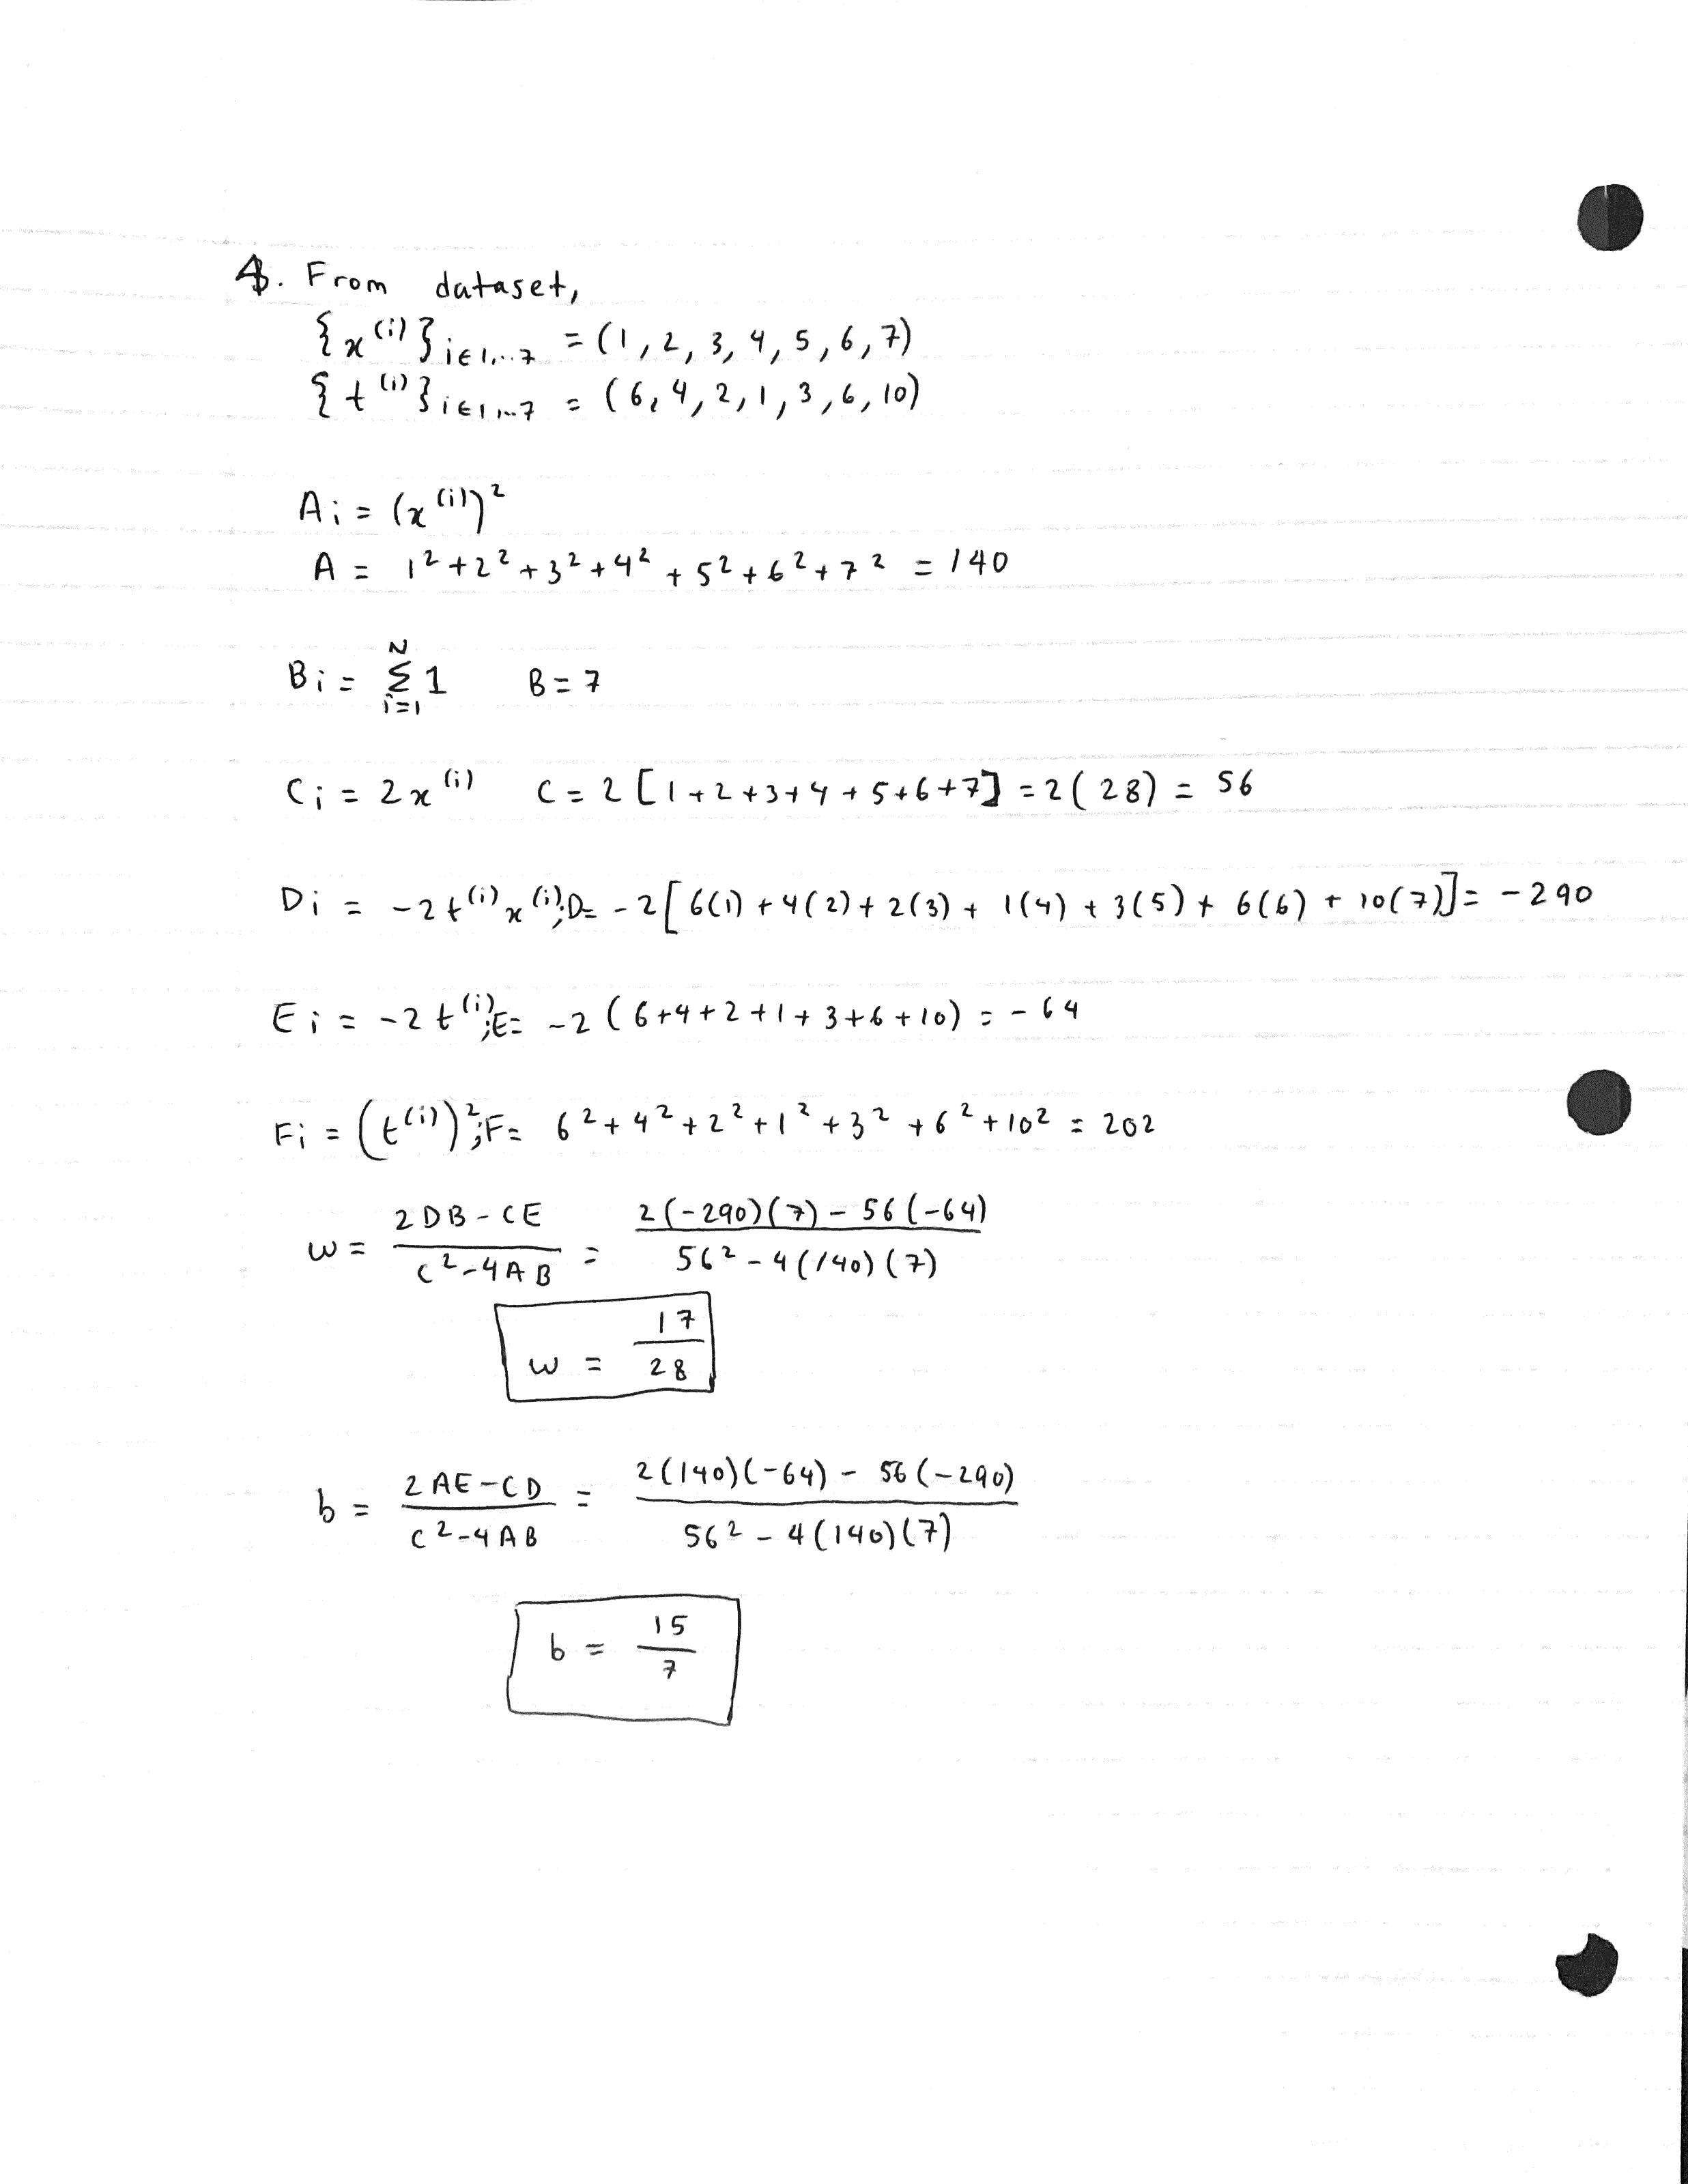 4. From dataset,
{x^(i)}_{i∈1,..7} = (1, 2, 3, 4, 5, 6, 7)
{t^(i)}_{i∈1,..7} = (6, 4, 2, 1, 3, 6, 10)
A_i = (x^(i))^2
A = 1^2 + 2^2 + 3^2 + 4^2 + 5^2 + 6^2 + 7^2 = 140
B_i = Σ_{i=1}^{N} 1 B = 7
C_i = 2x^(i) C = 2[1+2+3+4+5+6+7] = 2(28) = 56
D_i = -2t^(i)x^(i); D = -2[6(1) + 4(2) + 2(3) + 1(4) + 3(5) + 6(6) + 10(7)] = -290
E_i = -2t^(i); E = -2(6+4+2+1+3+6+10) = -64
F_i = (t^(i))^2; F = 6^2 + 4^2 + 2^2 + 1^2 + 3^2 + 6^2 + 10^2 = 202
w = (2DB - CE)/(C^2 - 4AB) = (2(-290)(7) - 56(-64))/(56^2 - 4(140)(7))
w = 17/28
b = (2AE - CD)/(C^2 - 4AB) = (2(140)(-64) - 56(-290))/(56^2 - 4(140)(7))
b = 15/7